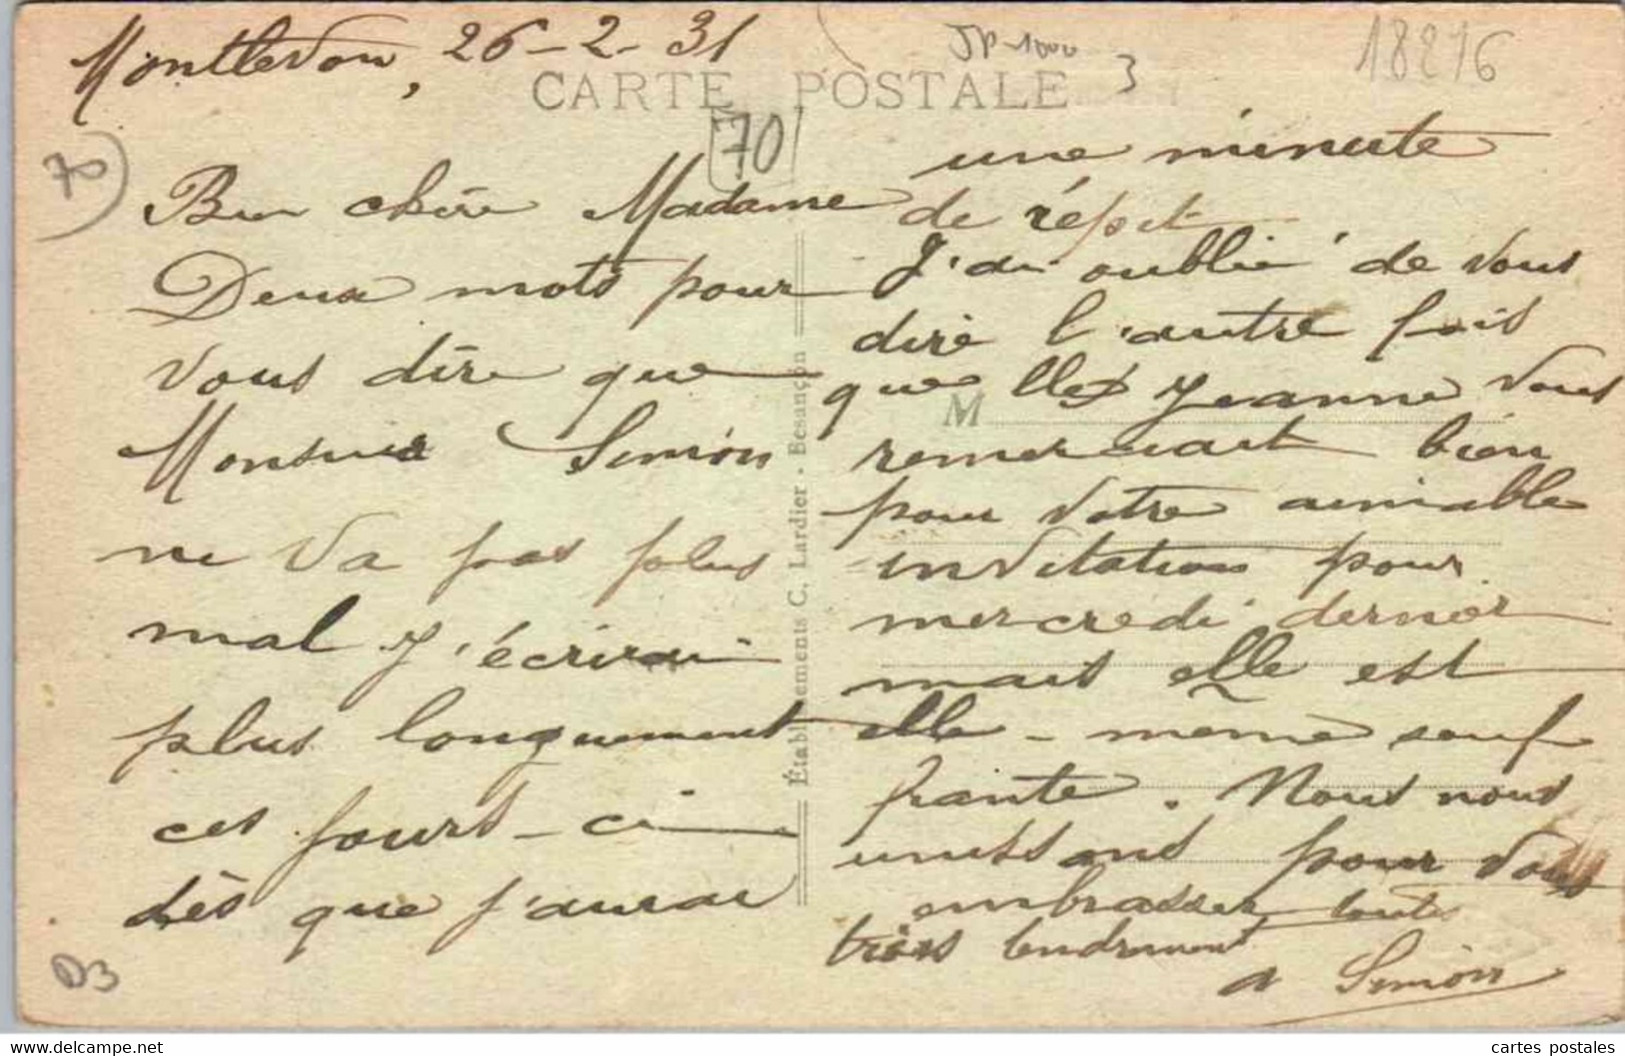 Montlevon, 26-2-31
JP-1000
3
18216
CARTE POSTALE
70
70
Bien chère Madame
Deux mots pour
vous dire que
Monsieur Simon
ne va pas plus
mal J'écrirai
plus longuement
ces jours-ci
dès que j'aurai
D3
Établissements C. Lardier - Besançon
une minute
de répit
J'ai oublié de vous
dire l'autre fois
que Jeanne vous
M
remerciait bien
pour votre aimable
invitation pour
mercredi dernier
mais elle est
elle-même souf
frante. Nous nous
unissons pour vous
embrasser toutes
trois tendrement
a Simon
cartes-postales-delcampe.net
cartes postales